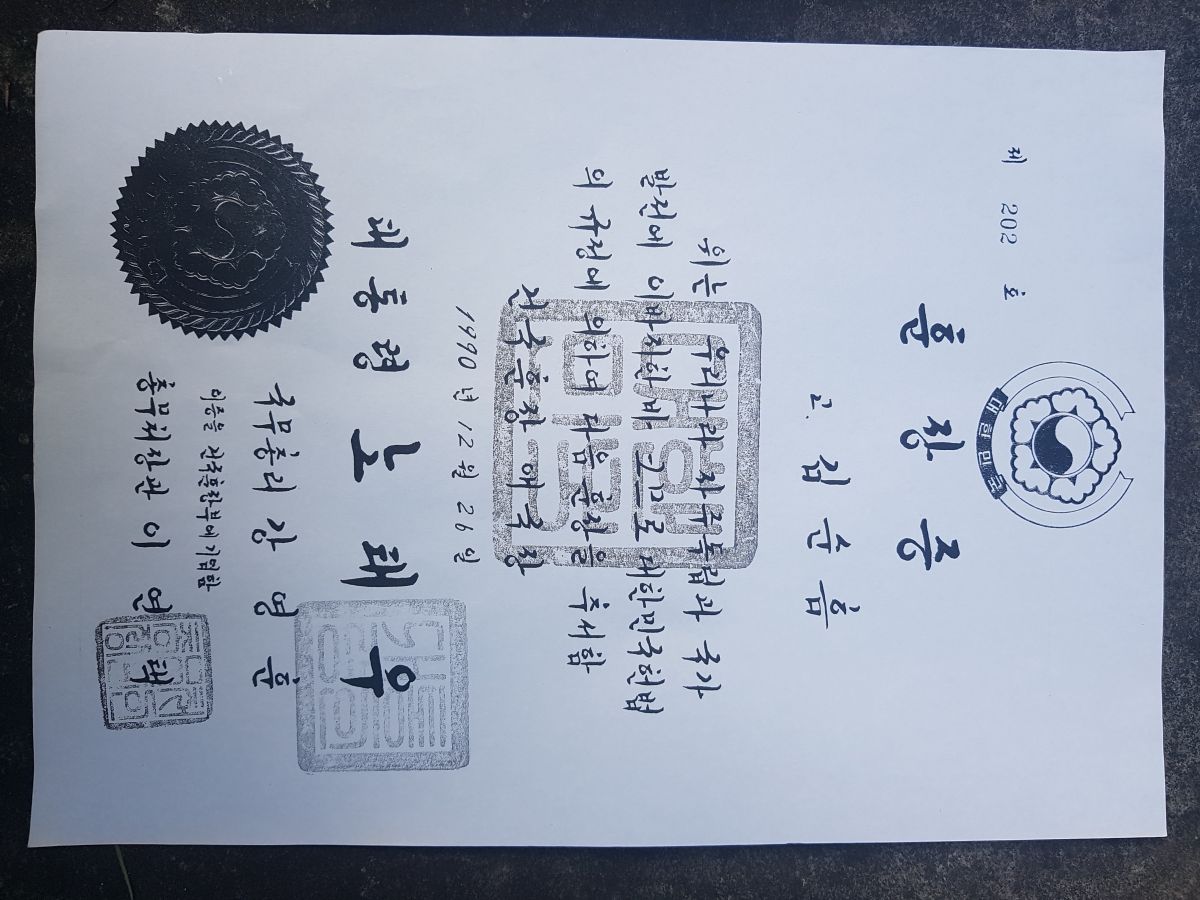 제 202 호
대한민국
훈장증
고 김순흠
위는 우리나라 자주독립과 국가
발전에 이바지한바 크므로 대한민국헌법
의 규정에 의하여 다음 훈장을 추서함
건국훈장 애국장
1990년 12월 26일
대통령 노태우
국무총리 강영훈
이증을 건국훈장부에 기입함
총무처장관 이연택